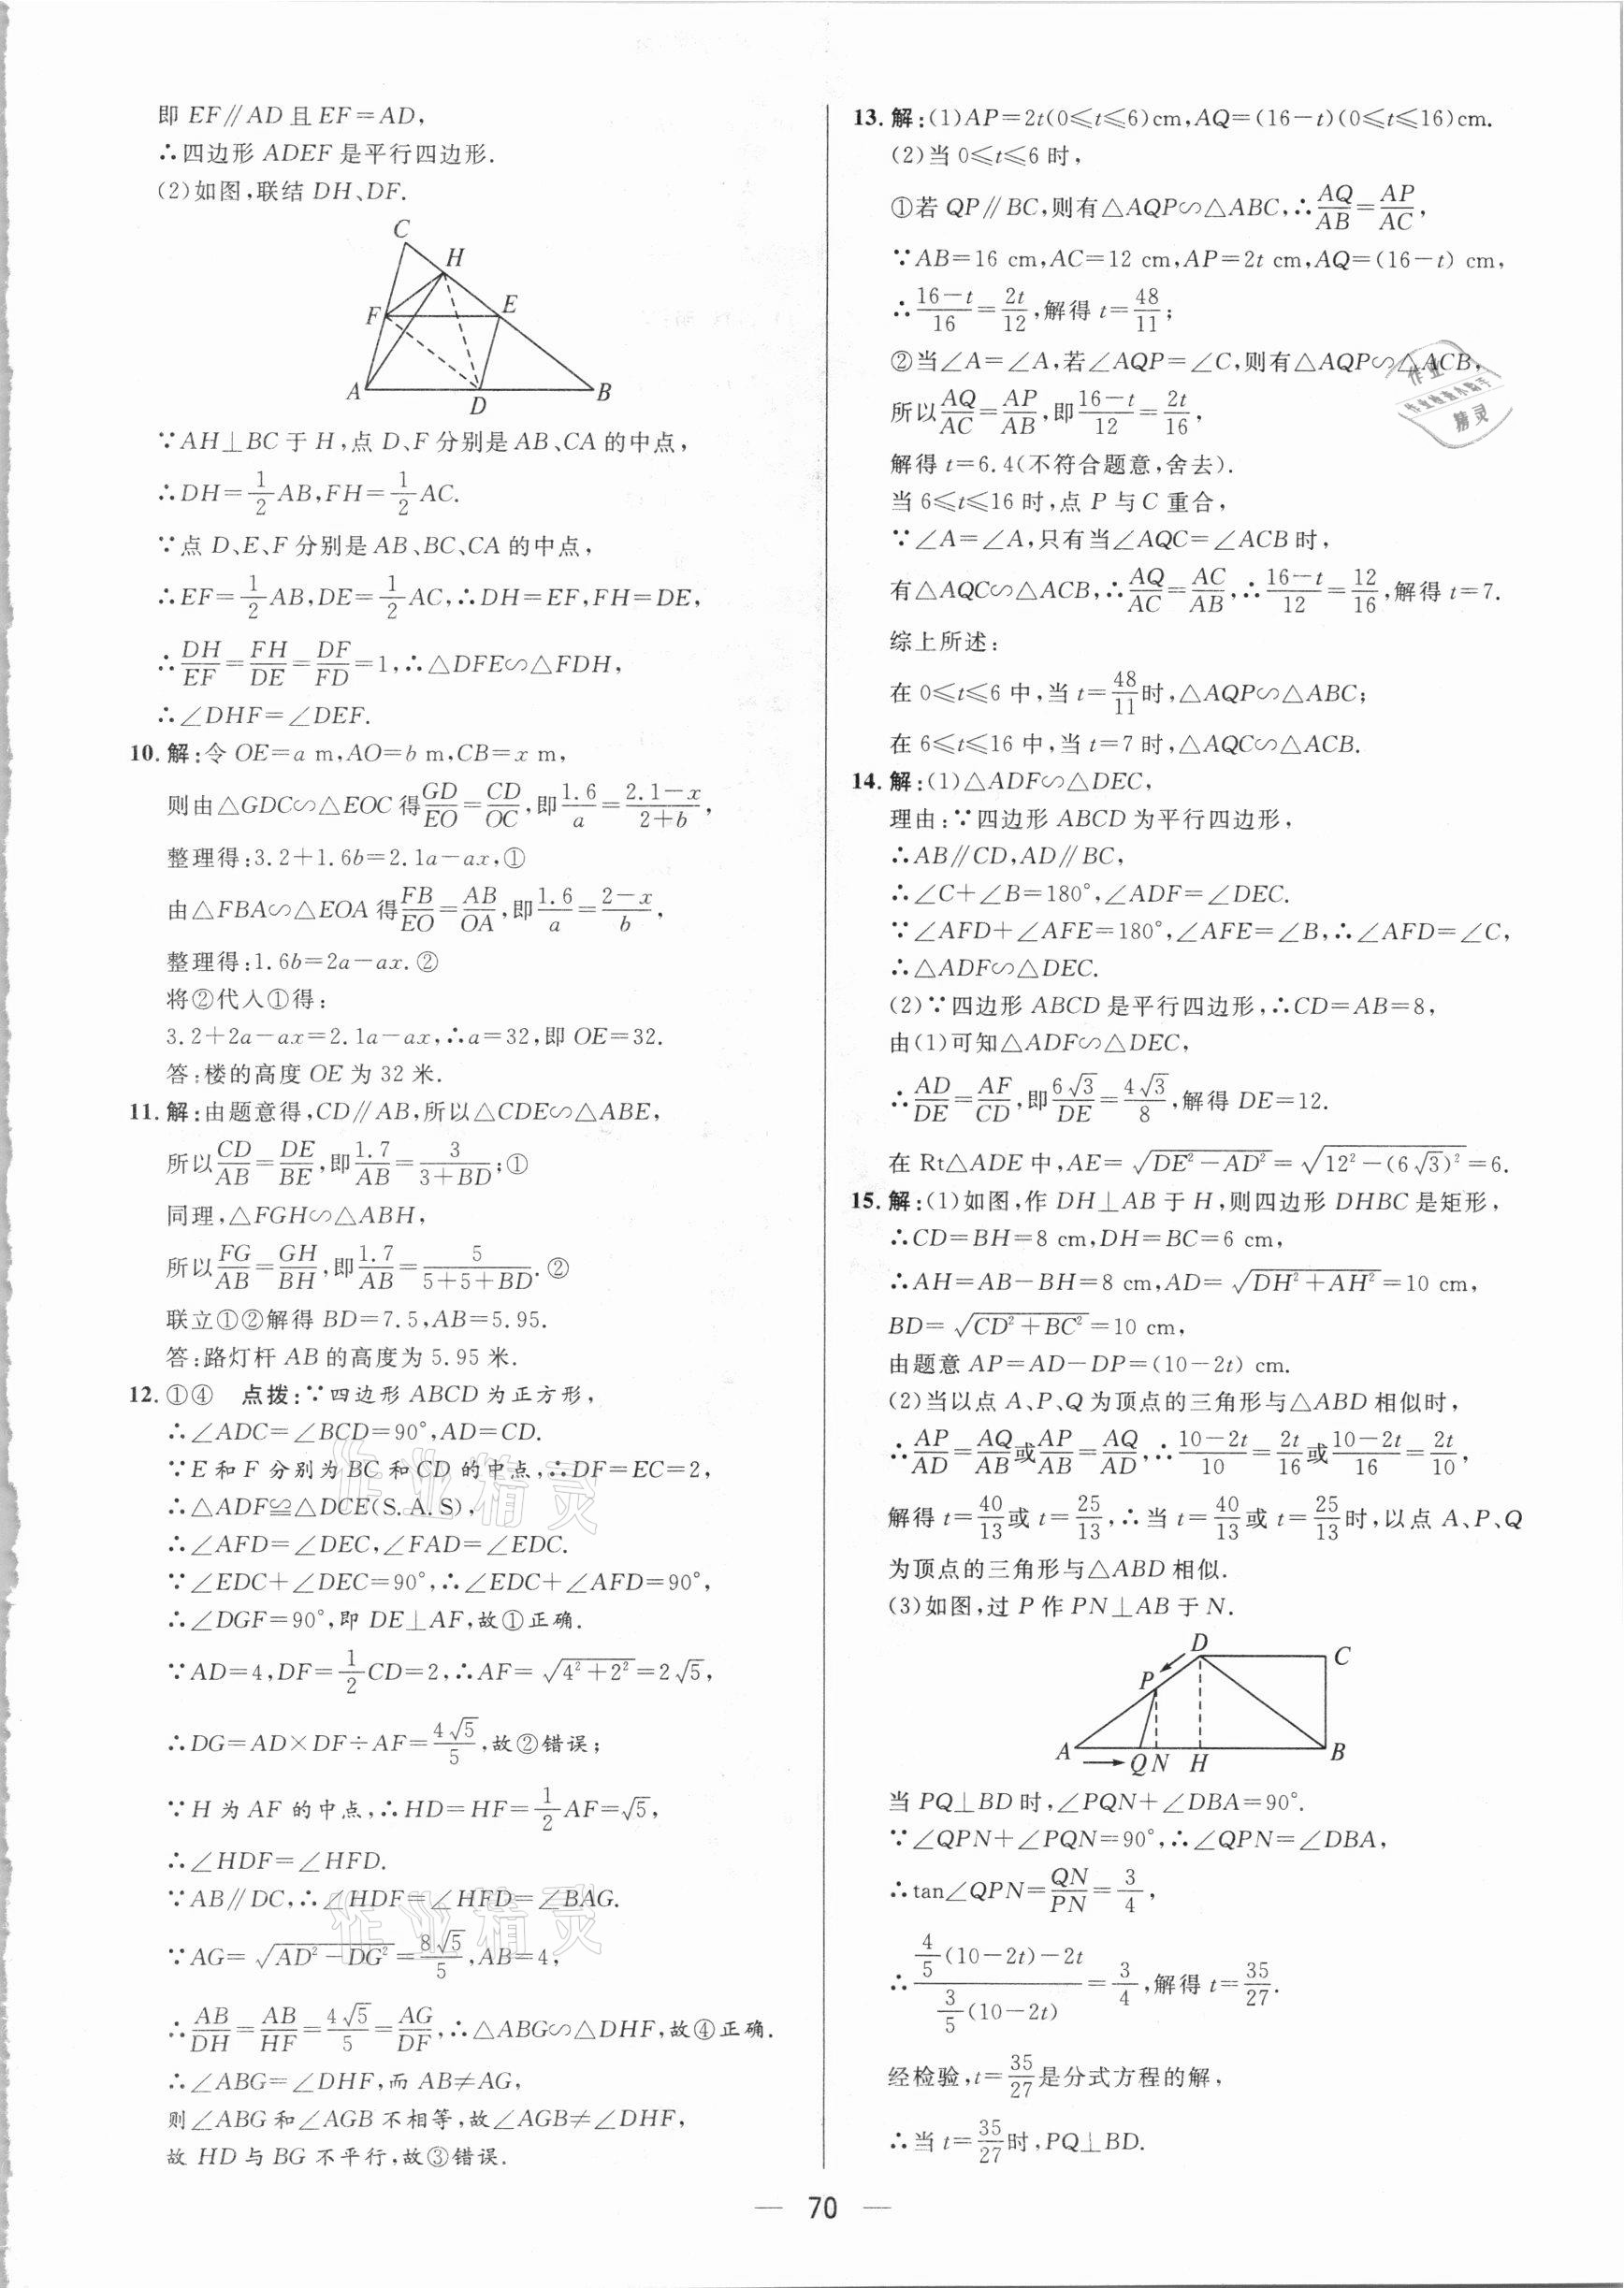 即 EF∥AD 且 EF=AD,
∴四边形 ADEF 是平行四边形.
(2)如图,联结 DH、DF.
C
H
F
E
A
D
B
∵AH⊥BC 于 H,点 D、F 分别是 AB、CA 的中点,
∴DH=1/2AB,FH=1/2AC.
∵点 D、E、F 分别是 AB、BC、CA 的中点,
∴EF=1/2AB,DE=1/2AC,∴DH=EF,FH=DE,
∴DH/EF=FH/DE=DF/FD=1,∴△DFE∽△FDH,
∴∠DHF=∠DEF.
10. 解:令 OE=a m,AO=b m,CB=x m,
则由△GDC∽△EOC 得GD/EO=CD/OC,即1.6/a=(2.1-x)/(2+b),
整理得:3.2+1.6b=2.1a-ax,①
由△FBA∽△EOA 得FB/EO=AB/OA,即1.6/a=(2-x)/b,
整理得:1.6b=2a-ax.②
将②代入①得:
3.2+2a-ax=2.1a-ax,∴a=32,即 OE=32.
答:楼的高度 OE 为 32 米.
11. 解:由题意得,CD∥AB,所以△CDE∽△ABE,
所以CD/AB=DE/BE,即1.7/AB=3/(3+BD);①
同理,△FGH∽△ABH,
所以FG/AB=GH/BH,即1.7/AB=5/(5+5+BD).②
联立①②解得 BD=7.5,AB=5.95.
答:路灯杆 AB 的高度为 5.95 米.
12. ①④ 点拨:∵四边形 ABCD 为正方形,
∴∠ADC=∠BCD=90°,AD=CD.
∵E 和 F 分别为 BC 和 CD 的中点,∴DF=EC=2,
∴△ADF≌△DCE(S.A.S),
∴∠AFD=∠DEC,∠FAD=∠EDC.
∵∠EDC+∠DEC=90°,∴∠EDC+∠AFD=90°,
∴∠DGF=90°,即 DE⊥AF,故①正确.
∵AD=4,DF=1/2CD=2,∴AF=√(4²+2²)=2√5,
∴DG=AD×DF÷AF=4√5/5,故②错误;
∵H 为 AF 的中点,∴HD=HF=1/2AF=√5,
∴∠HDF=∠HFD.
∵AB∥DC,∴∠HDF=∠HFD=∠BAG.
∵AG=√(AD²-DG²)=8√5/5,AB=4,
∴AB/DH=AB/HF=4√5/5=AG/DF,∴△ABG∽△DHF,故④正确.
∴∠ABG=∠DHF,而 AB≠AG,
则∠ABG 和∠AGB 不相等,故∠AGB≠∠DHF,
故 HD 与 BG 不平行,故③错误.
13. 解:(1)AP=2t(0≤t≤6)cm,AQ=(16-t)(0≤t≤16)cm.
(2)当 0≤t≤6 时,
①若 QP∥BC,则有△AQP∽△ABC,∴AQ/AB=AP/AC,
∵AB=16 cm,AC=12 cm,AP=2t cm,AQ=(16-t) cm,
∴(16-t)/16=2t/12,解得 t=48/11;
②当∠A=∠A,若∠AQP=∠C,则有△AQP∽△ACB,
所以AQ/AC=AP/AB,即(16-t)/12=2t/16,
解得 t=6.4(不符合题意,舍去).
当 6≤t≤16 时,点 P 与 C 重合,
∵∠A=∠A,只有当∠AQC=∠ACB 时,
有△AQC∽△ACB,∴AQ/AC=AC/AB,∴(16-t)/12=12/16,解得 t=7.
综上所述:
在 0≤t≤6 中,当 t=48/11时,△AQP∽△ABC;
在 6≤t≤16 中,当 t=7 时,△AQC∽△ACB.
14. 解:(1)△ADF∽△DEC,
理由:∵四边形 ABCD 为平行四边形,
∴AB∥CD,AD∥BC,
∴∠C+∠B=180°,∠ADF=∠DEC.
∵∠AFD+∠AFE=180°,∠AFE=∠B,∴∠AFD=∠C,
∴△ADF∽△DEC.
(2)∵四边形 ABCD 是平行四边形,∴CD=AB=8,
由(1)可知△ADF∽△DEC,
∴AD/DE=AF/CD,即6√3/DE=4√3/8,解得 DE=12.
在 Rt△ADE 中,AE=√(DE²-AD²)=√(12²-(6√3)²)=6.
15. 解:(1)如图,作 DH⊥AB 于 H,则四边形 DHBC 是矩形,
∴CD=BH=8 cm,DH=BC=6 cm,
∴AH=AB-BH=8 cm,AD=√(DH²+AH²)=10 cm,
BD=√(CD²+BC²)=10 cm,
由题意 AP=AD-DP=(10-2t) cm.
(2)当以点 A、P、Q 为顶点的三角形与△ABD 相似时,
∴AP/AD=AQ/AB或AP/AB=AQ/AD,∴(10-2t)/10=2t/16或(10-2t)/16=2t/10,
解得 t=40/13或 t=25/13,∴当 t=40/13或 t=25/13时,以点 A、P、Q
为顶点的三角形与△ABD 相似.
(3)如图,过 P 作 PN⊥AB 于 N.
D
C
P
A
Q N H
B
当 PQ⊥BD 时,∠PQN+∠DBA=90°.
∵∠QPN+∠PQN=90°,∴∠QPN=∠DBA,
∴tan∠QPN=QN/PN=3/4,
∴(4/5(10-2t)-2t)/(3/5(10-2t))=3/4,解得 t=35/27.
经检验,t=35/27是分式方程的解,
∴当 t=35/27时,PQ⊥BD.
— 70 —
作业
作业检查小助手
精灵
作业精灵
作业精灵